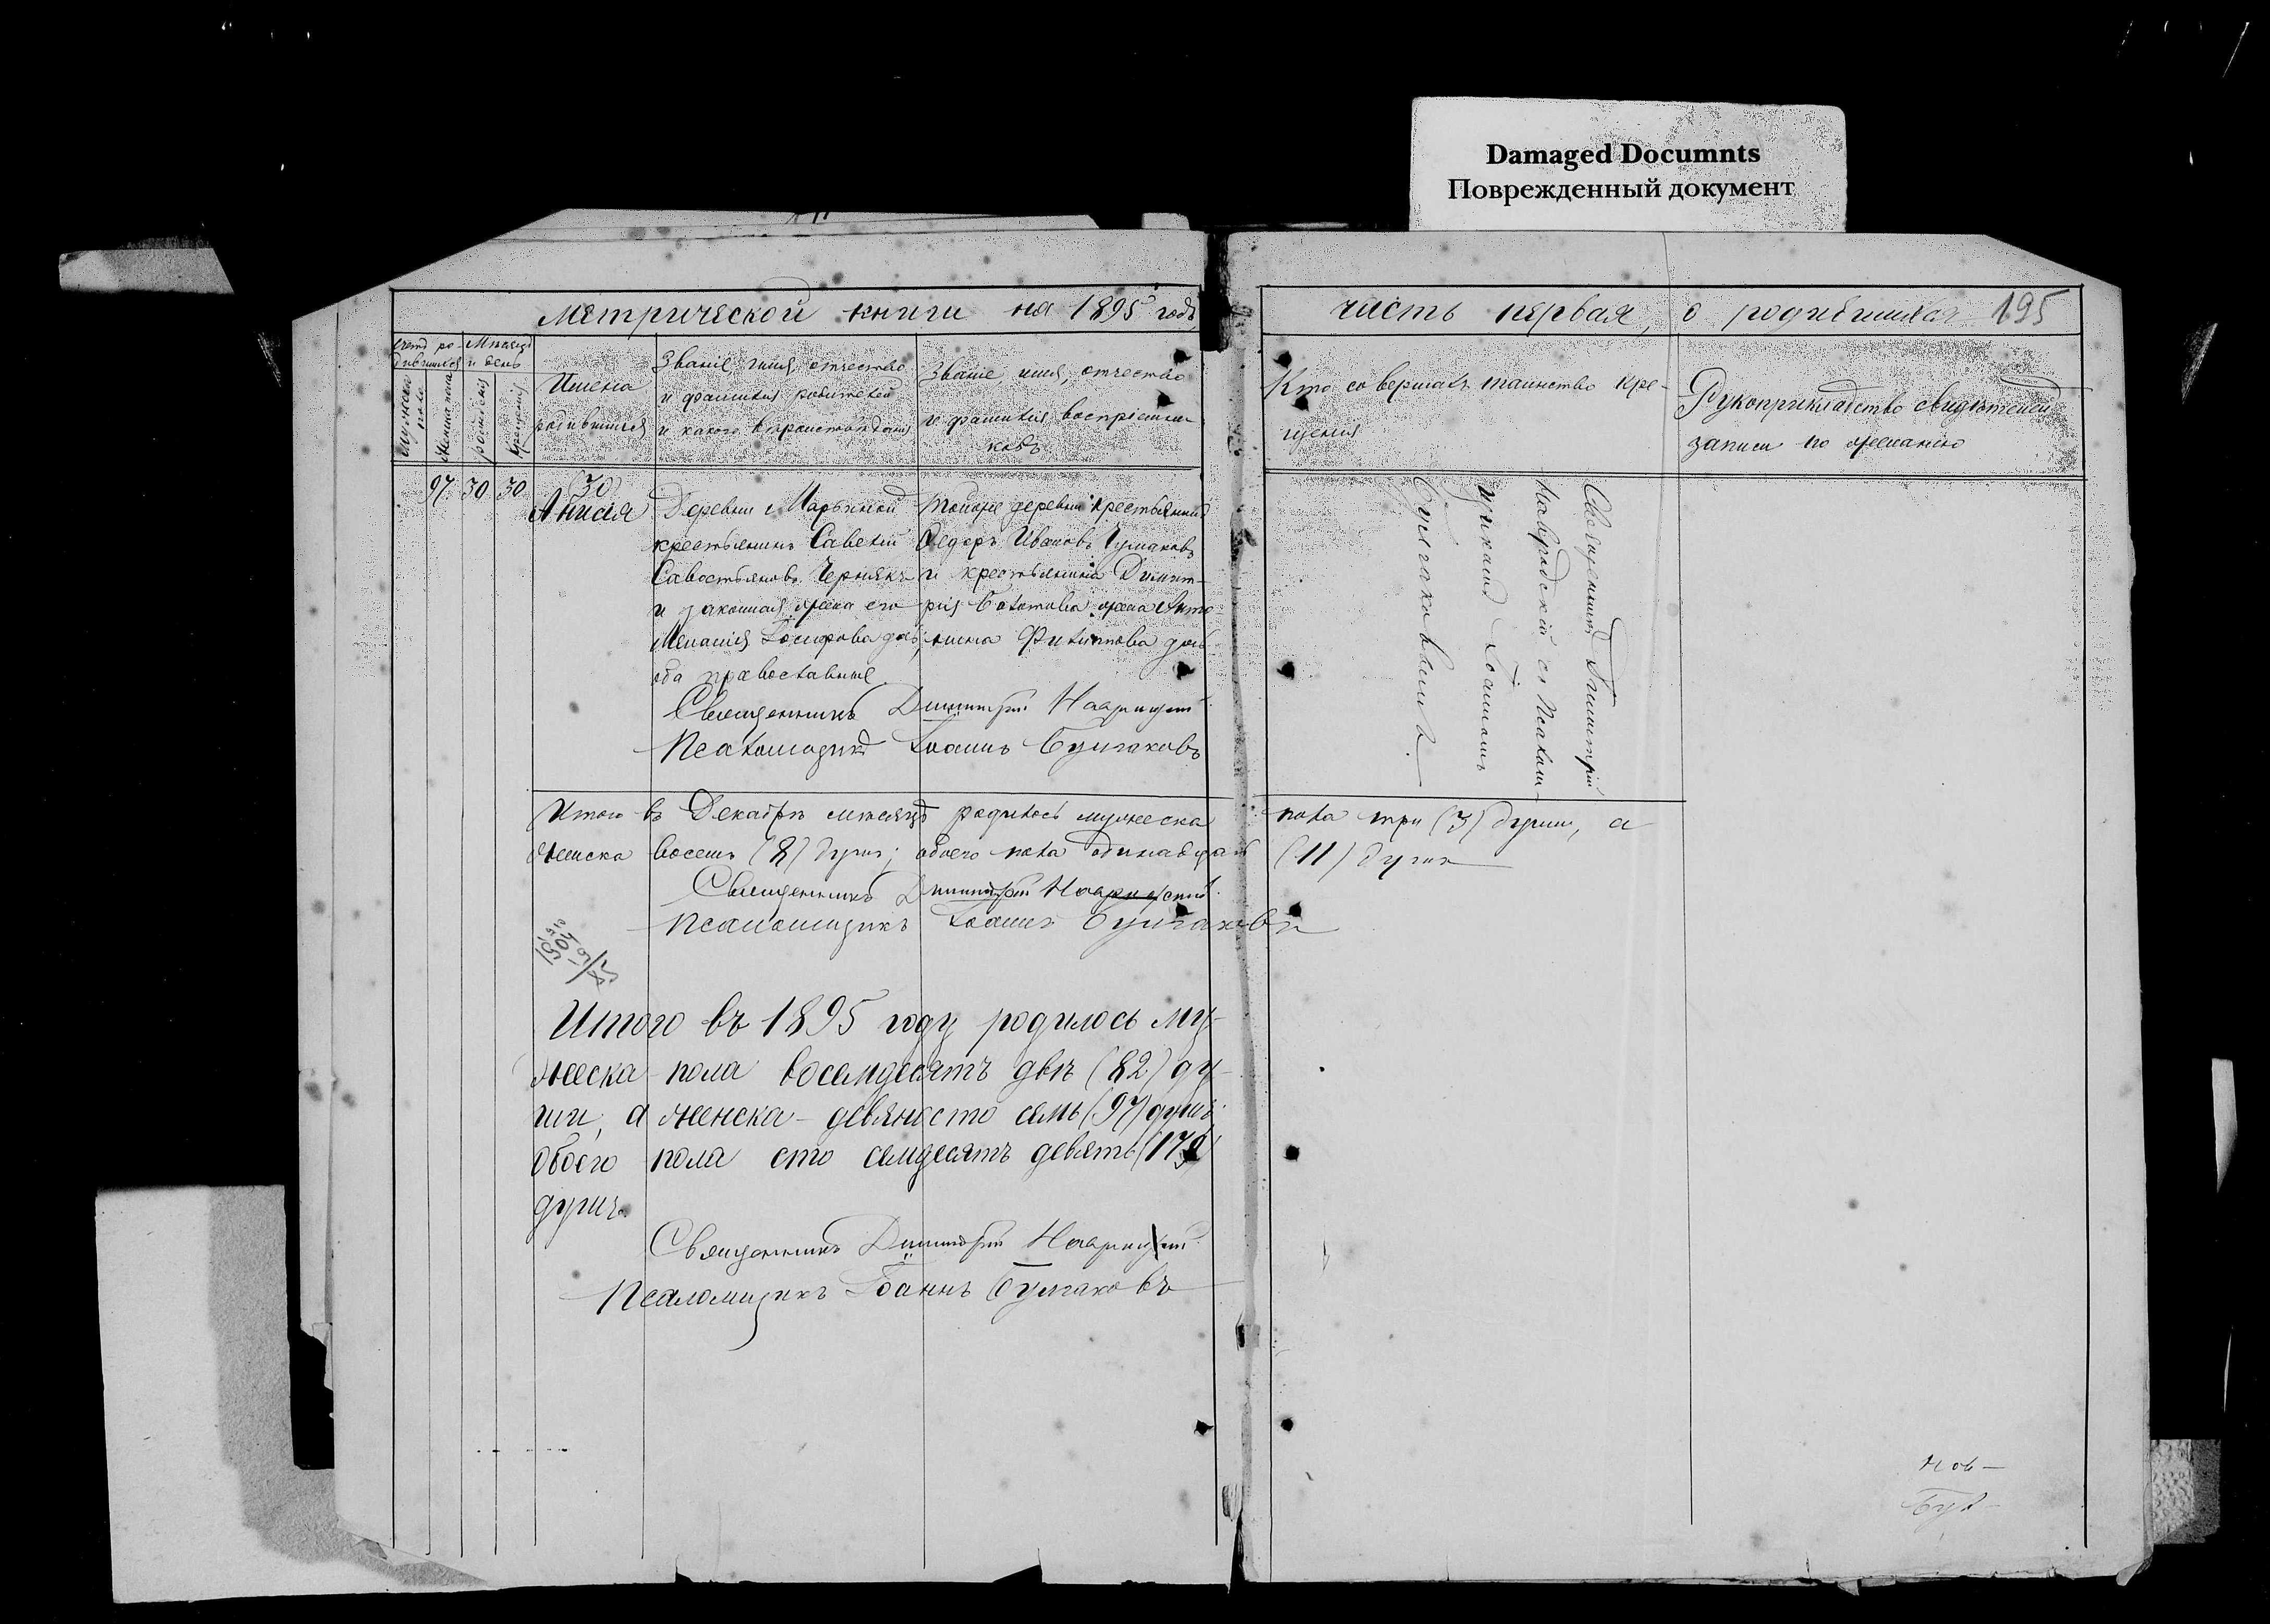 Damaged Documnts
Поврежденный документ
Метрической книги на 1895 годъ
часть первая, о родившихся 195
Счетъ ро-
дившихся
Мѣсяцъ
и день
Мужеска
пола
Женска пола
рожденія
крещенія
Имена
родившихся
Званіе, имя, отчество
и фамилія родителей
и какого вѣроисповѣданія
Званіе, имя, отчество
и фамилія воспріемни
ковъ
Кто совершалъ таинство кре-
щенія
Рукоприкладство свидѣтелей
записи по желанію
97 30 30
(30)
Анисія
Деревни Марьиной
крестьянинъ Савелій
Савостьяновъ Чернякъ
и законная жена его
Меланія Іосифова
оба православные
Тойже деревни крестьянинъ
Ѳедоръ Ивановъ Чумаковъ
и крестьянина Димит-
рія жена Анто-
нина Филиппова
Священникъ Димитрій
Псаломщикъ Іоаннъ Булгаковъ
Священникъ Димитрій
Навродскій съ Псалом-
щикомъ Іоанномъ
Булгаковымъ.
Итого въ Декабрѣ мѣсяцѣ родилось мужеска пола три (3) души, а
женска восемь (8) душъ; обоего пола одинадцать (11) душъ
Священникъ Димитрій
Псаломщикъ Іоаннъ Булгаковъ
Итого въ 1895 году родилось му-
жеска пола восемдесятъ двѣ (82) ду-
ши, а женска - девяносто семь (97) душъ
обоего пола сто семдесятъ девять (179)
душъ.
Священникъ Димитрій
Псаломщикъ Іоаннъ Булгаковъ